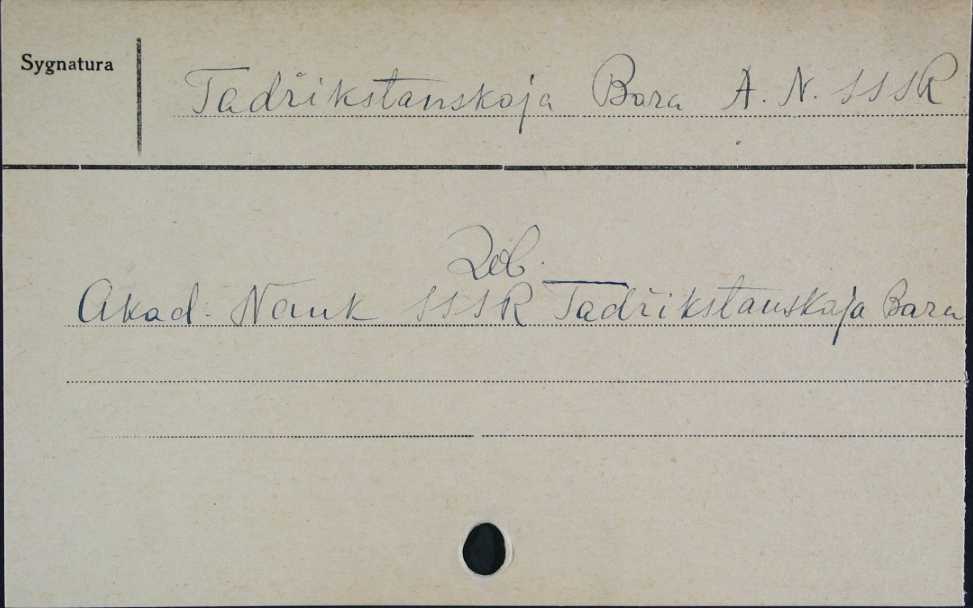 Sygnatura
Tadžikstanskaja Baza A. N. SSSR
Zob.
Akad. Nauk SSSR Tadžikstanskaja Baza